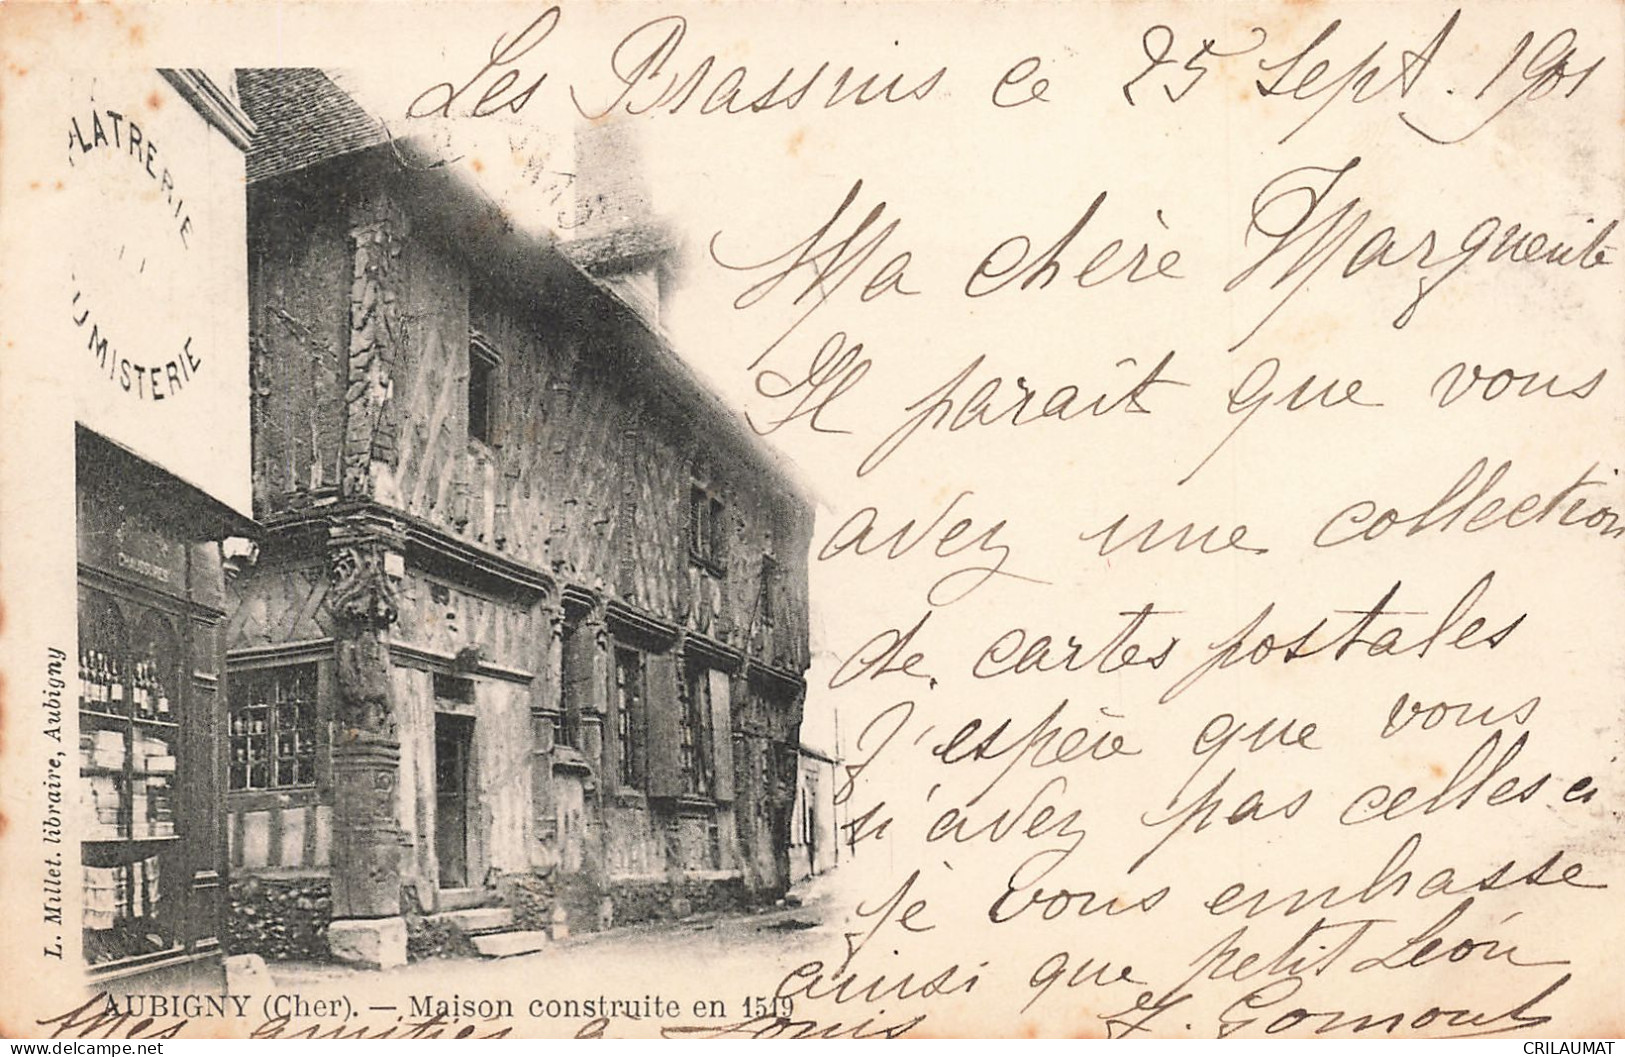 Les Brassins ce 25 Sept. 1901
PLATRERIE
UMISTERIE
Ma chère Marguerite
Il paraît que vous
avez une collection
de cartes postales
J'espère que vous
n'avez pas celles ci
je vous embrasse
ainsi que petit Léon
Mes amitiés à Louis
L. Millet. libraire, Aubigny
AUBIGNY (Cher). — Maison construite en 1519
CRILAUMAT